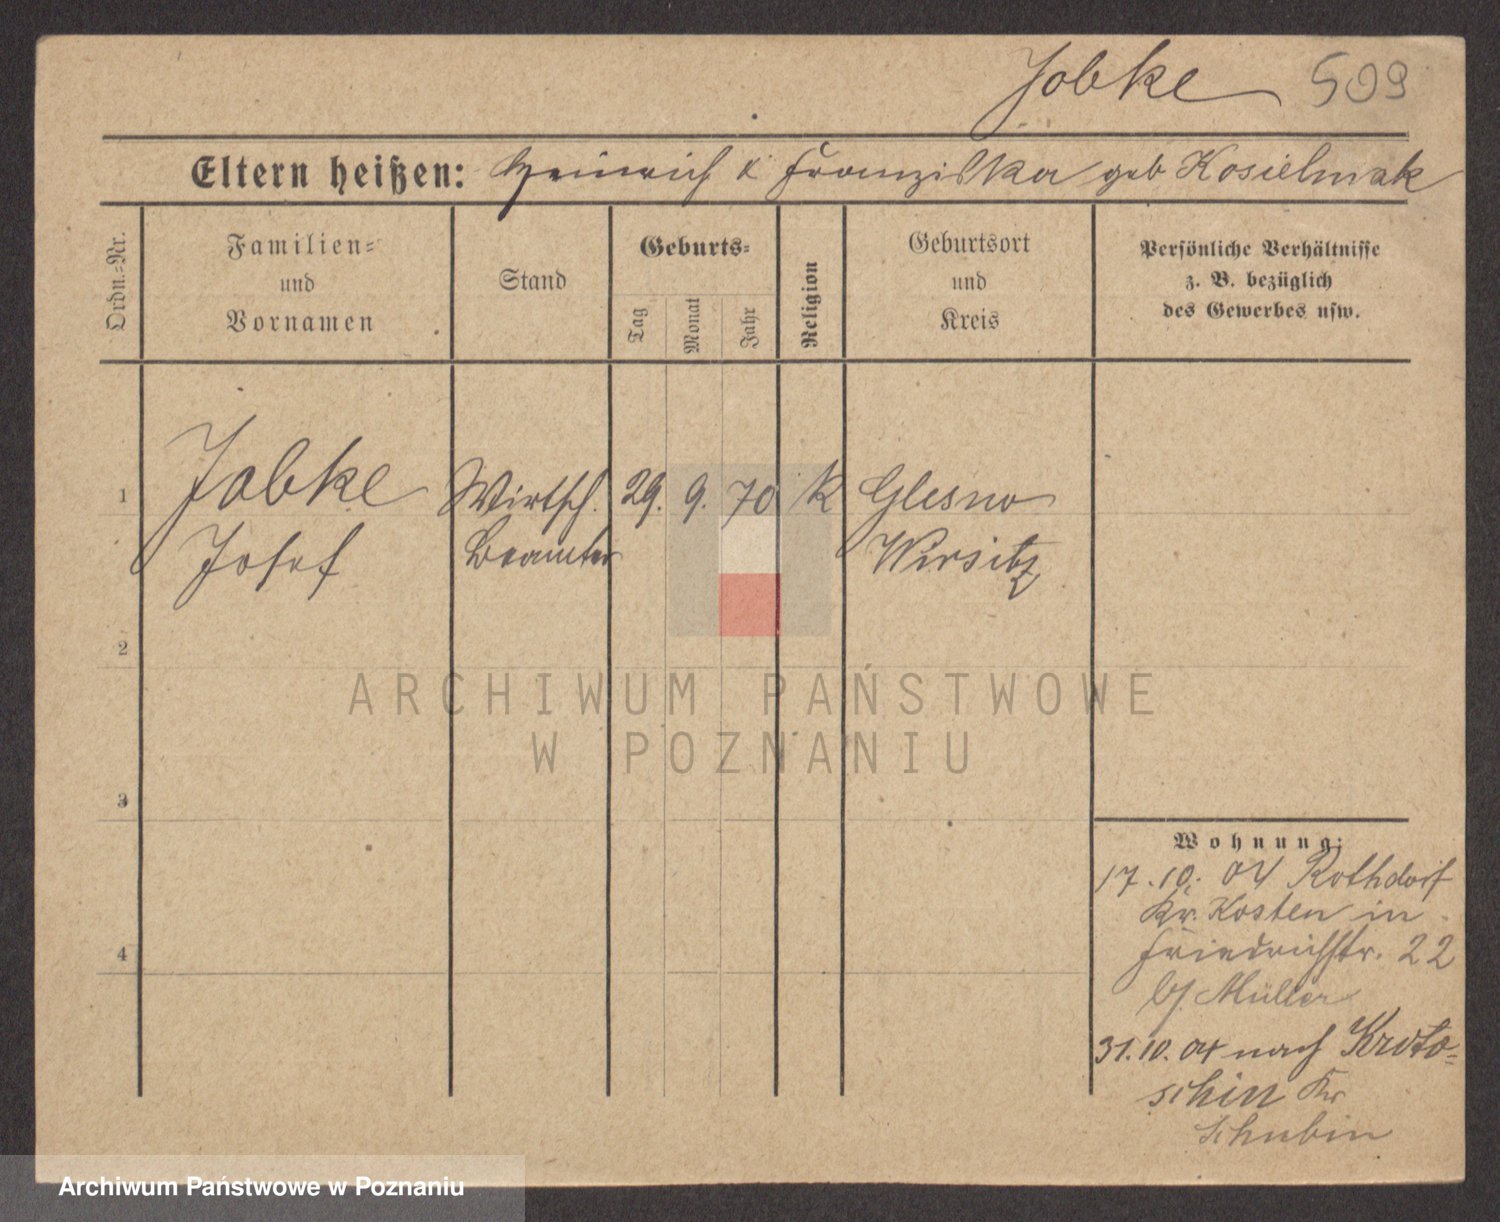 Jobke 509
Eltern heißen: Heinrich & Franziska geb Kosielniak
Ordn.-Nr.
Familien-
und
Vornamen
Stand
Geburts-
Tag
Monat
Jahr
Religion
Geburtsort
und
Kreis
Persönliche Verhältnisse
z. B. bezüglich
des Gewerbes usw.
1
Jobke Wirtsch. 29. 9. 70 K Glesno
Josef Beamter Wirsitz
2
ARCHIWUM PAŃSTWOWE
W POZNANIU
3
Wohnung:
17.10.04 Rothdorf
Kr. Kosten in
Friedrichstr. 22
4
b/ Müller
31.10.04 nach Kroto-
schin Kr
Schubin
Archiwum Państwowe w Poznaniu